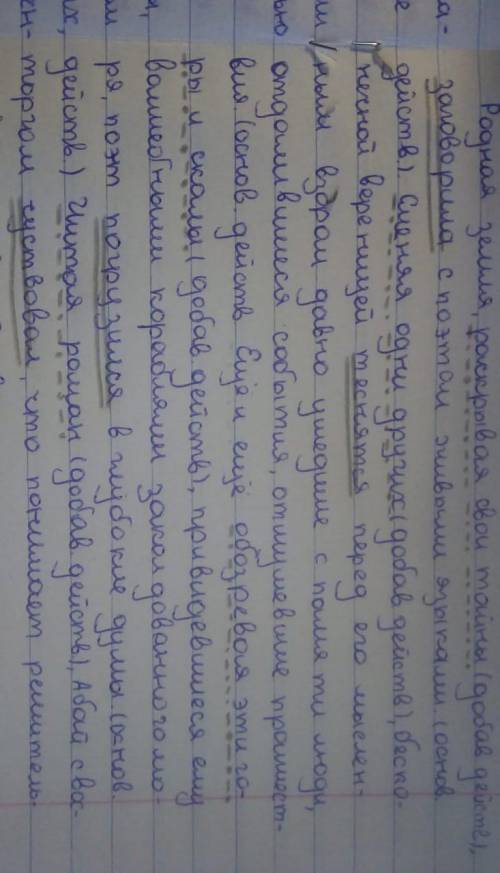 Родная земля, раскрывая свои тайны (добав действ),
заговорила с поэтом живыми языками (основ
действ). Сменяя одни других (добав действ), беско-
нечной вереницей теснятся перед его мыслен-
ным взором давно ушедшие с памяти люди,
отдалившиеся события, отшумевшие прошест-
вия (основ действ Ещё и ещё обозревая эти го-
ры и скалы (добав действ), привидевшиеся ему
волшебными кораблями заколдованного мо-
ря, поэт погрузился в глубокие думы (основ.
действ) Читая роман (добав действ), Абай с во-
торгом чуствовал, что понимает решитель-